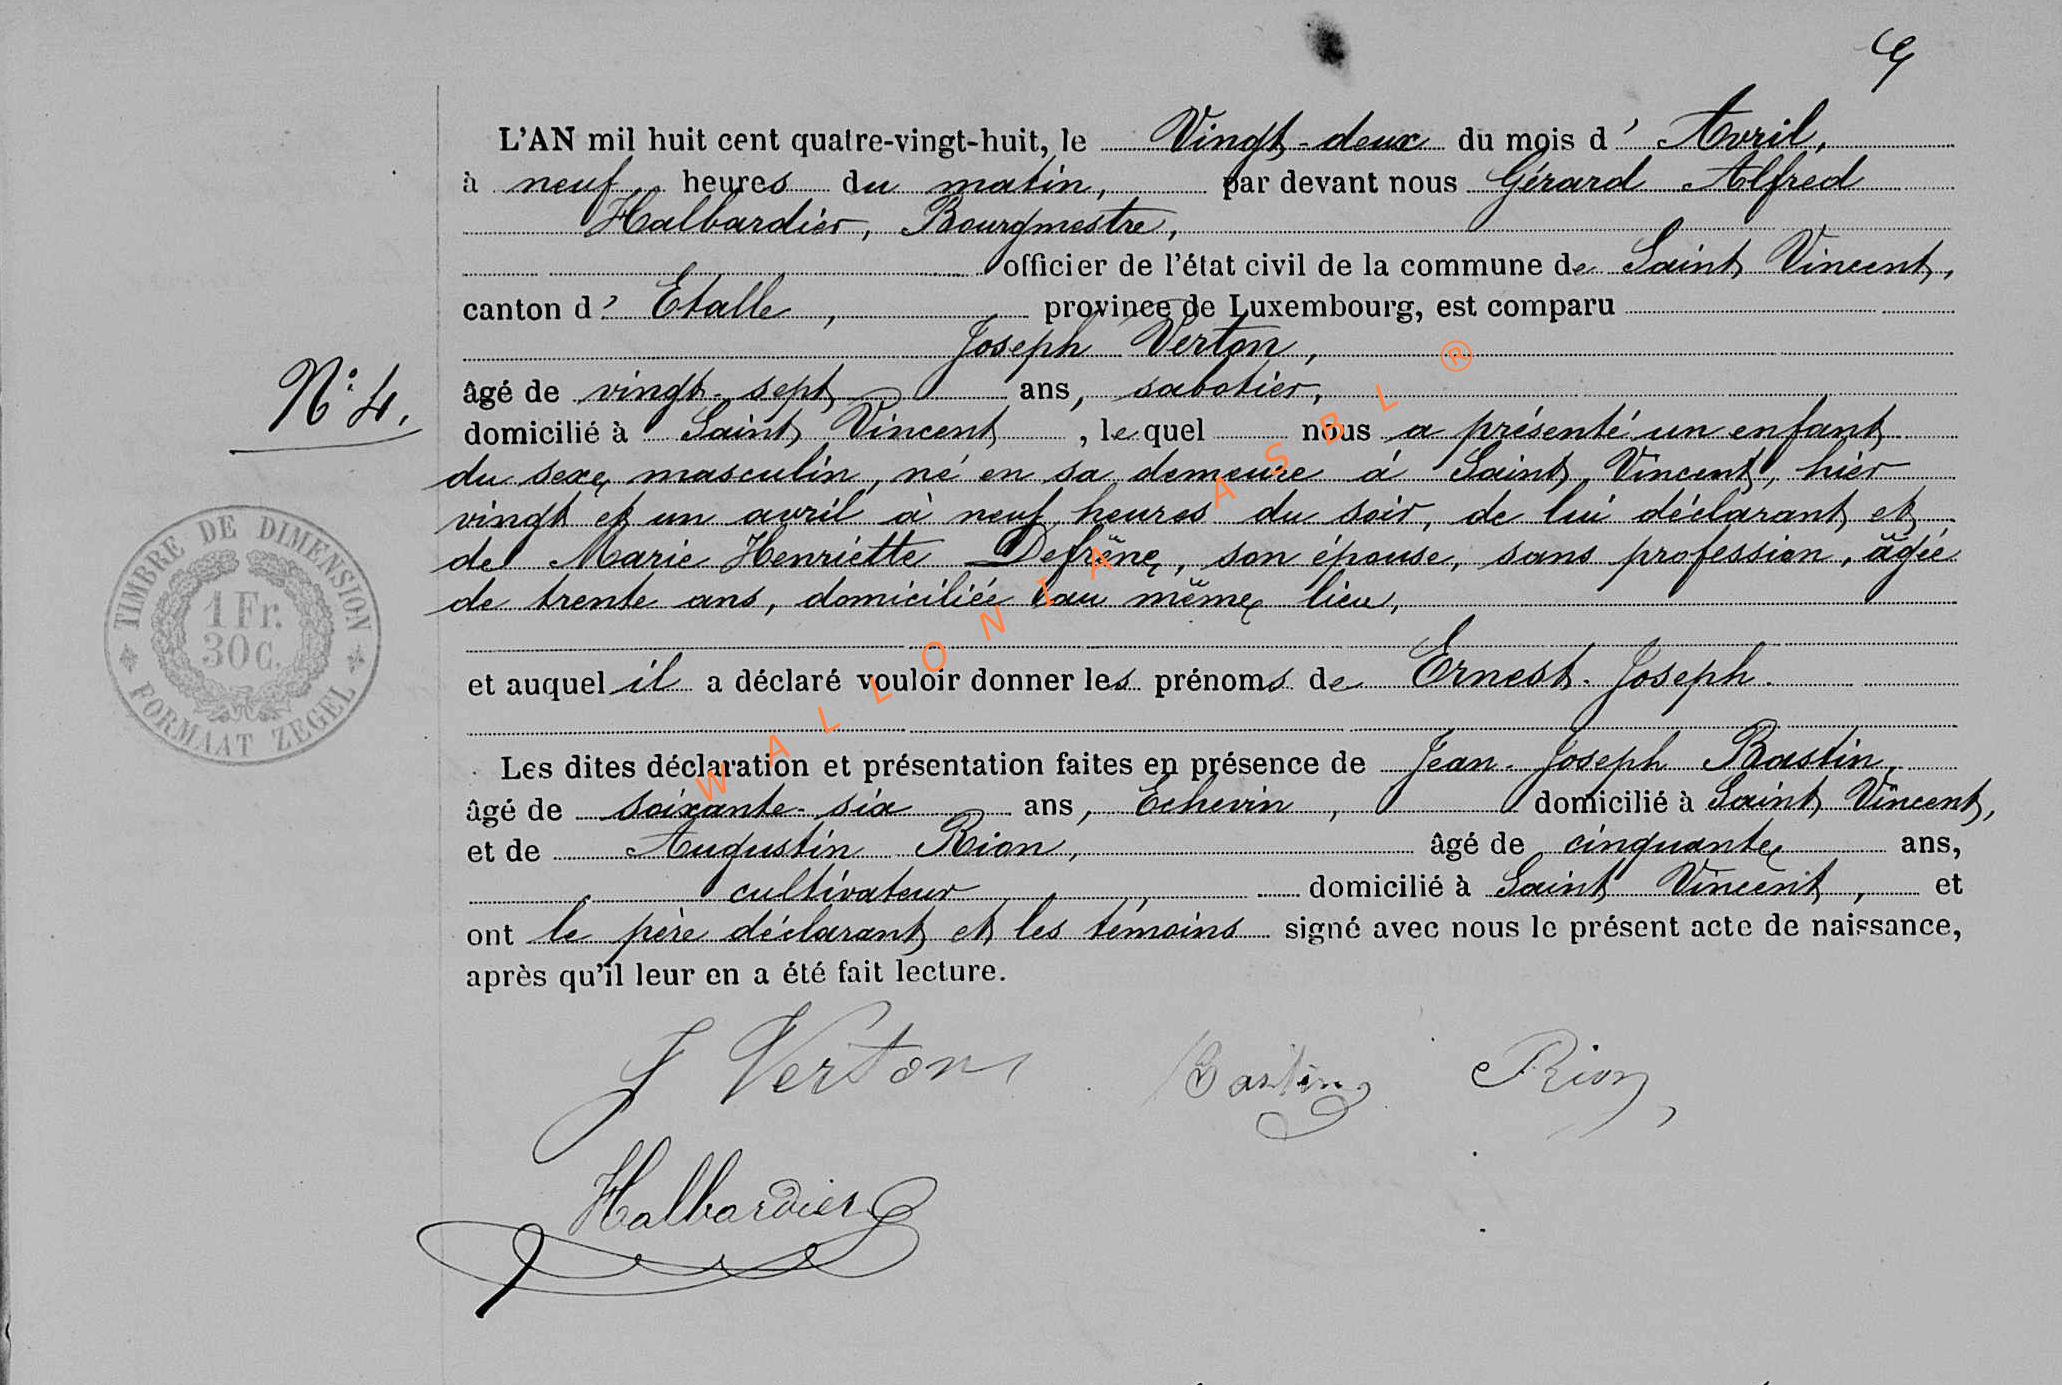 L'AN mil huit cent quatre-vingt-huit, le Vingt-deux du mois d' Avril,
à neuf heures du matin, par devant nous Gérard Alfred
Halbardier, Bourgmestre,
officier de l'état civil de la commune de Saint Vincent,
canton d' Etalle, province de Luxembourg, est comparu
Joseph Verton,
âgé de vingt-sept ans, sabotier,
N° 4.
domicilié à Saint Vincent, lequel nous a présenté un enfant
du sexe masculin, né en sa demeure à Saint Vincent, hier
vingt et un avril à neuf heures du soir, de lui déclarant et
de Marie Henriette Defrêne, son épouse, sans profession, âgée
de trente ans, domiciliée au même lieu,
et auquel il a déclaré vouloir donner les prénoms de Ernest-Joseph.
Les dites déclaration et présentation faites en présence de Jean-Joseph Bastin,
âgé de soixante-six ans, Echevin, domicilié à Saint Vincent,
et de Augustin Rion, âgé de cinquante ans,
cultivateur, domicilié à Saint Vincent, et
ont le père déclarant et les témoins signé avec nous le présent acte de naissance,
après qu'il leur en a été fait lecture.
J Verton Bastin Rion,
Halbardier
TIMBRE DE DIMENSION
1 Fr.
30 C.
FORMAAT ZEGEL
WALLONIA ASBL ®